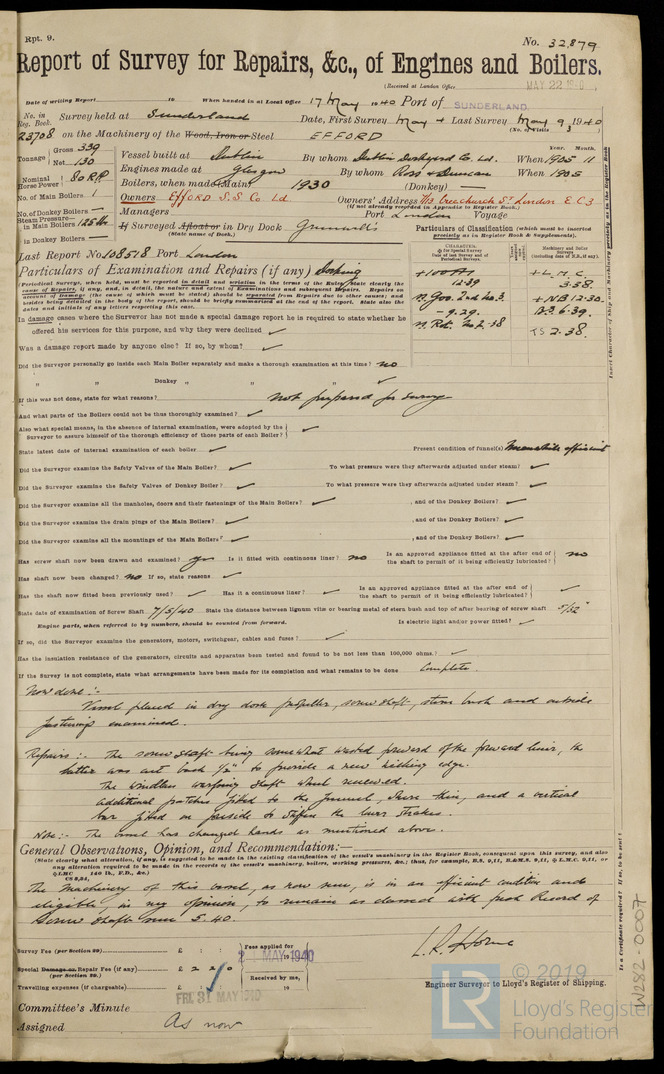 Rpt. 9.
No. 32,879
Report of Survey for Repairs, &c., of Engines and Boilers.
(Received at London Office MAY 22 1940
Date of writing Report 19 When handed in at Local Office 17 May 1940 Port of SUNDERLAND.
No. in Reg. Book. Survey held at Sunderland Date, First Survey May 4 Last Survey May 9 1940
(No. of Visits 3)
23708 on the Machinery of the Wood, Iron or Steel EFFORD
Tonnage Gross 339 Net 130
Vessel built at Dublin By whom Dublin Dockyard Co. Ld. When 1905 11
Year. Month.
Nominal Horse Power 80 RP
Engines made at Glasgow By whom Ross & Duncan When 1905
No. of Main Boilers 1
Boilers, when made (Main) 1930 (Donkey) —
No. of Donkey Boilers —
Owners EFFORD S.S. Co. Ld. Owners' Address 7/13 Creechurch St. London E.C.3
(if not already recorded in Appendix to Register Book.)
Steam Pressure in Main Boilers 125 lb
Managers Port London Voyage
in Donkey Boilers —
If Surveyed Afloat or in Dry Dock
(State name of Dock.)
Particulars of Classification (which must be inserted precisely as in Register Book & Supplements).
Last Report No. 108518 Port London
Particulars of Examination and Repairs (if any) Docking
(Periodical Surveys, when held, must be reported in detail and seriatim in the terms of the Rules. State clearly the cause of Repairs, if any, and, in detail, the nature and extent of Examinations and subsequent Repairs. Repairs on account of Damage (the cause of which must be stated) should be separated from Repairs due to other causes; and besides being detailed in the body of the report, should be briefly summarised at the end of the report. State also the dates and initials of any letters respecting this case.)
+100A1
12.39
- 9.29.
+L.M.C.
3.38
+NB 12.30.
B.S. 6.39.
TS 2.38.
In damage cases where the Surveyor has not made a special damage report he is required to state whether he offered his services for this purpose, and why they were declined ✓
Was a damage report made by anyone else? If so, by whom? ✓
Did the Surveyor personally go inside each Main Boiler separately and make a thorough examination at this time? no
„ „ Donkey „ „ „ „ ✓
If this was not done, state for what reasons? Not prepared for survey
And what parts of the Boilers could not be thoroughly examined? ✓
Also what special means, in the absence of internal examination, were adopted by the Surveyor to assure himself of the thorough efficiency of those parts of each Boiler? ✓
State latest date of internal examination of each boiler ✓ Present condition of funnel(s) Meanwhile efficient
Did the Surveyor examine the Safety Valves of the Main Boiler? ✓ To what pressure were they afterwards adjusted under steam? ✓
Did the Surveyor examine the Safety Valves of Donkey Boiler? ✓ To what pressure were they afterwards adjusted under steam? ✓
Did the Surveyor examine all the manholes, doors and their fastenings of the Main Boilers? ✓ , and of the Donkey Boilers? ✓
Did the Surveyor examine the drain plugs of the Main Boilers? ✓ , and of the Donkey Boilers? ✓
Did the Surveyor examine all the mountings of the Main Boilers? ✓ , and of the Donkey Boilers? ✓
Has screw shaft now been drawn and examined? yes Is it fitted with continuous liner? no Is an approved appliance fitted at the after end of the shaft to permit of it being efficiently lubricated? no
Has shaft now been changed? no If so, state reasons ✓
Has the shaft now fitted been previously used? ✓ Has it a continuous liner? ✓ Is an approved appliance fitted at the after end of the shaft to permit of it being efficiently lubricated? ✓
State date of examination of Screw Shaft 7/5/40 State the distance between lignum vitæ or bearing metal of stern bush and top of after bearing of screw shaft 5/32"
Engine parts, when referred to by numbers, should be counted from forward. Is electric light and/or power fitted? ✓
If so, did the Surveyor examine the generators, motors, switchgear, cables and fuses? ✓
Has the insulation resistance of the generators, circuits and apparatus been tested and found to be not less than 100,000 ohms? ✓
If the Survey is not complete, state what arrangements have been made for its completion and what remains to be done Complete.
Now done :-
Vessel placed in dry dock propeller, screw shaft, stern bush and outside fastenings examined.
Repairs :- The screw shaft being somewhat wasted forward of the forward liner, the
latter was cut back 1/2" to provide a new
The windlass warping shaft wheel renewed.
Additional patches fitted to the funnel, where thin, and a vertical
bar fitted on foreside to stiffen the lower strakes.
Note :- The vessel has changed hands as mentioned above.
General Observations, Opinion, and Recommendation:—
(State clearly what alteration, if any, is suggested to be made in the existing classification of the vessel's machinery in the Register Book, consequent upon this survey, and also any alteration required to be made in the records of the vessel's machinery, boilers, working pressures, &c.; thus, for example, B.S. 9,11, B.&M.S. 9,11, or L.M.C. 9,11, or LMC CS 3,34, 140 lb., F.D., &c.)
The machinery of this vessel, as now seen, is in an efficient condition and
eligible, in my opinion, to remain as classed with fresh Record of
Screw Shaft seen 5.40.
Survey Fee (per Section 29) £ : :
Special Damage or Repair Fee (if any) (per Section 29.) £ 2 2 0
Travelling expenses (if chargeable) £
Fees applied for
21 MAY 1940
Received by me,
19
FRI. 31 MAY 1940
L. R. Horne
Engineer Surveyor to Lloyd's Register of Shipping.
Committee's Minute
Assigned As now
Insert Character of Ship and Machinery precisely as in the Register Book
Is a Certificate required? If so, to be sent to
W282-0007
© 2019
LR
Lloyd's Register
Foundation